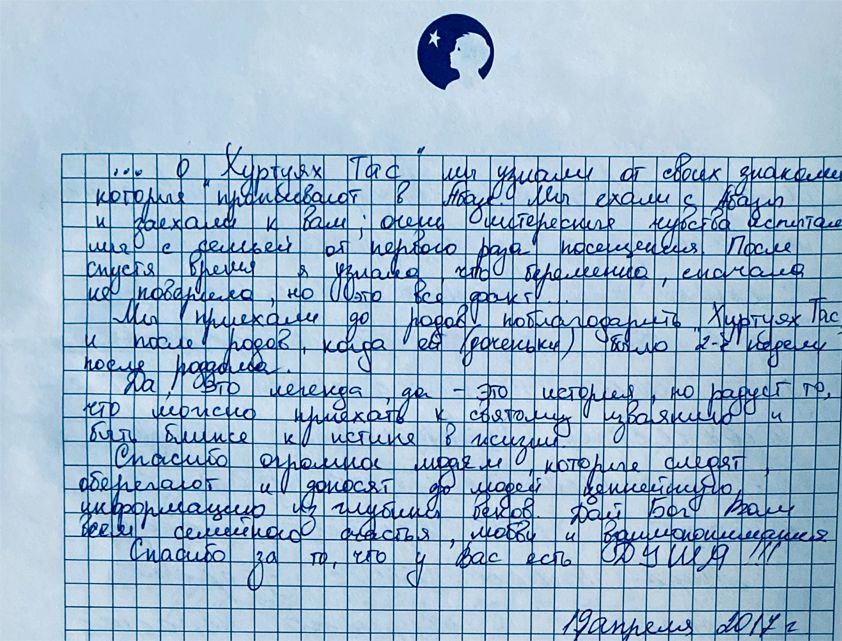 ... О "Хуртуях Тас" мы узнали от своих знакомых
которые проживают в Абазе. Мы ехали с Абазы
и заехали к вам; очень интересные чувства испытали
мы с семьёй от первого раза посещения. После
спустя время я узнала, что беременна, сначала
не поверила, но это всё факт...
Мы приехали до родов поблагодарить "Хуртуях Тас"
и после родов, когда ей (доченьки) было 2-е недели
после роддома.
Да, это легенда, да - это история, но радует то,
что можно приехать к святому изваянию и
быть ближе к истине в жизни.
Спасибо огромное людям, которые следят,
оберегают и доносят до людей ценнейшую
информацию из глубины веков. Дай Бог Вам
всем семейного счастья, любви и взаимопонимания
Спасибо за то, что у Вас есть ДУША!!!
19 апреля 2017 г